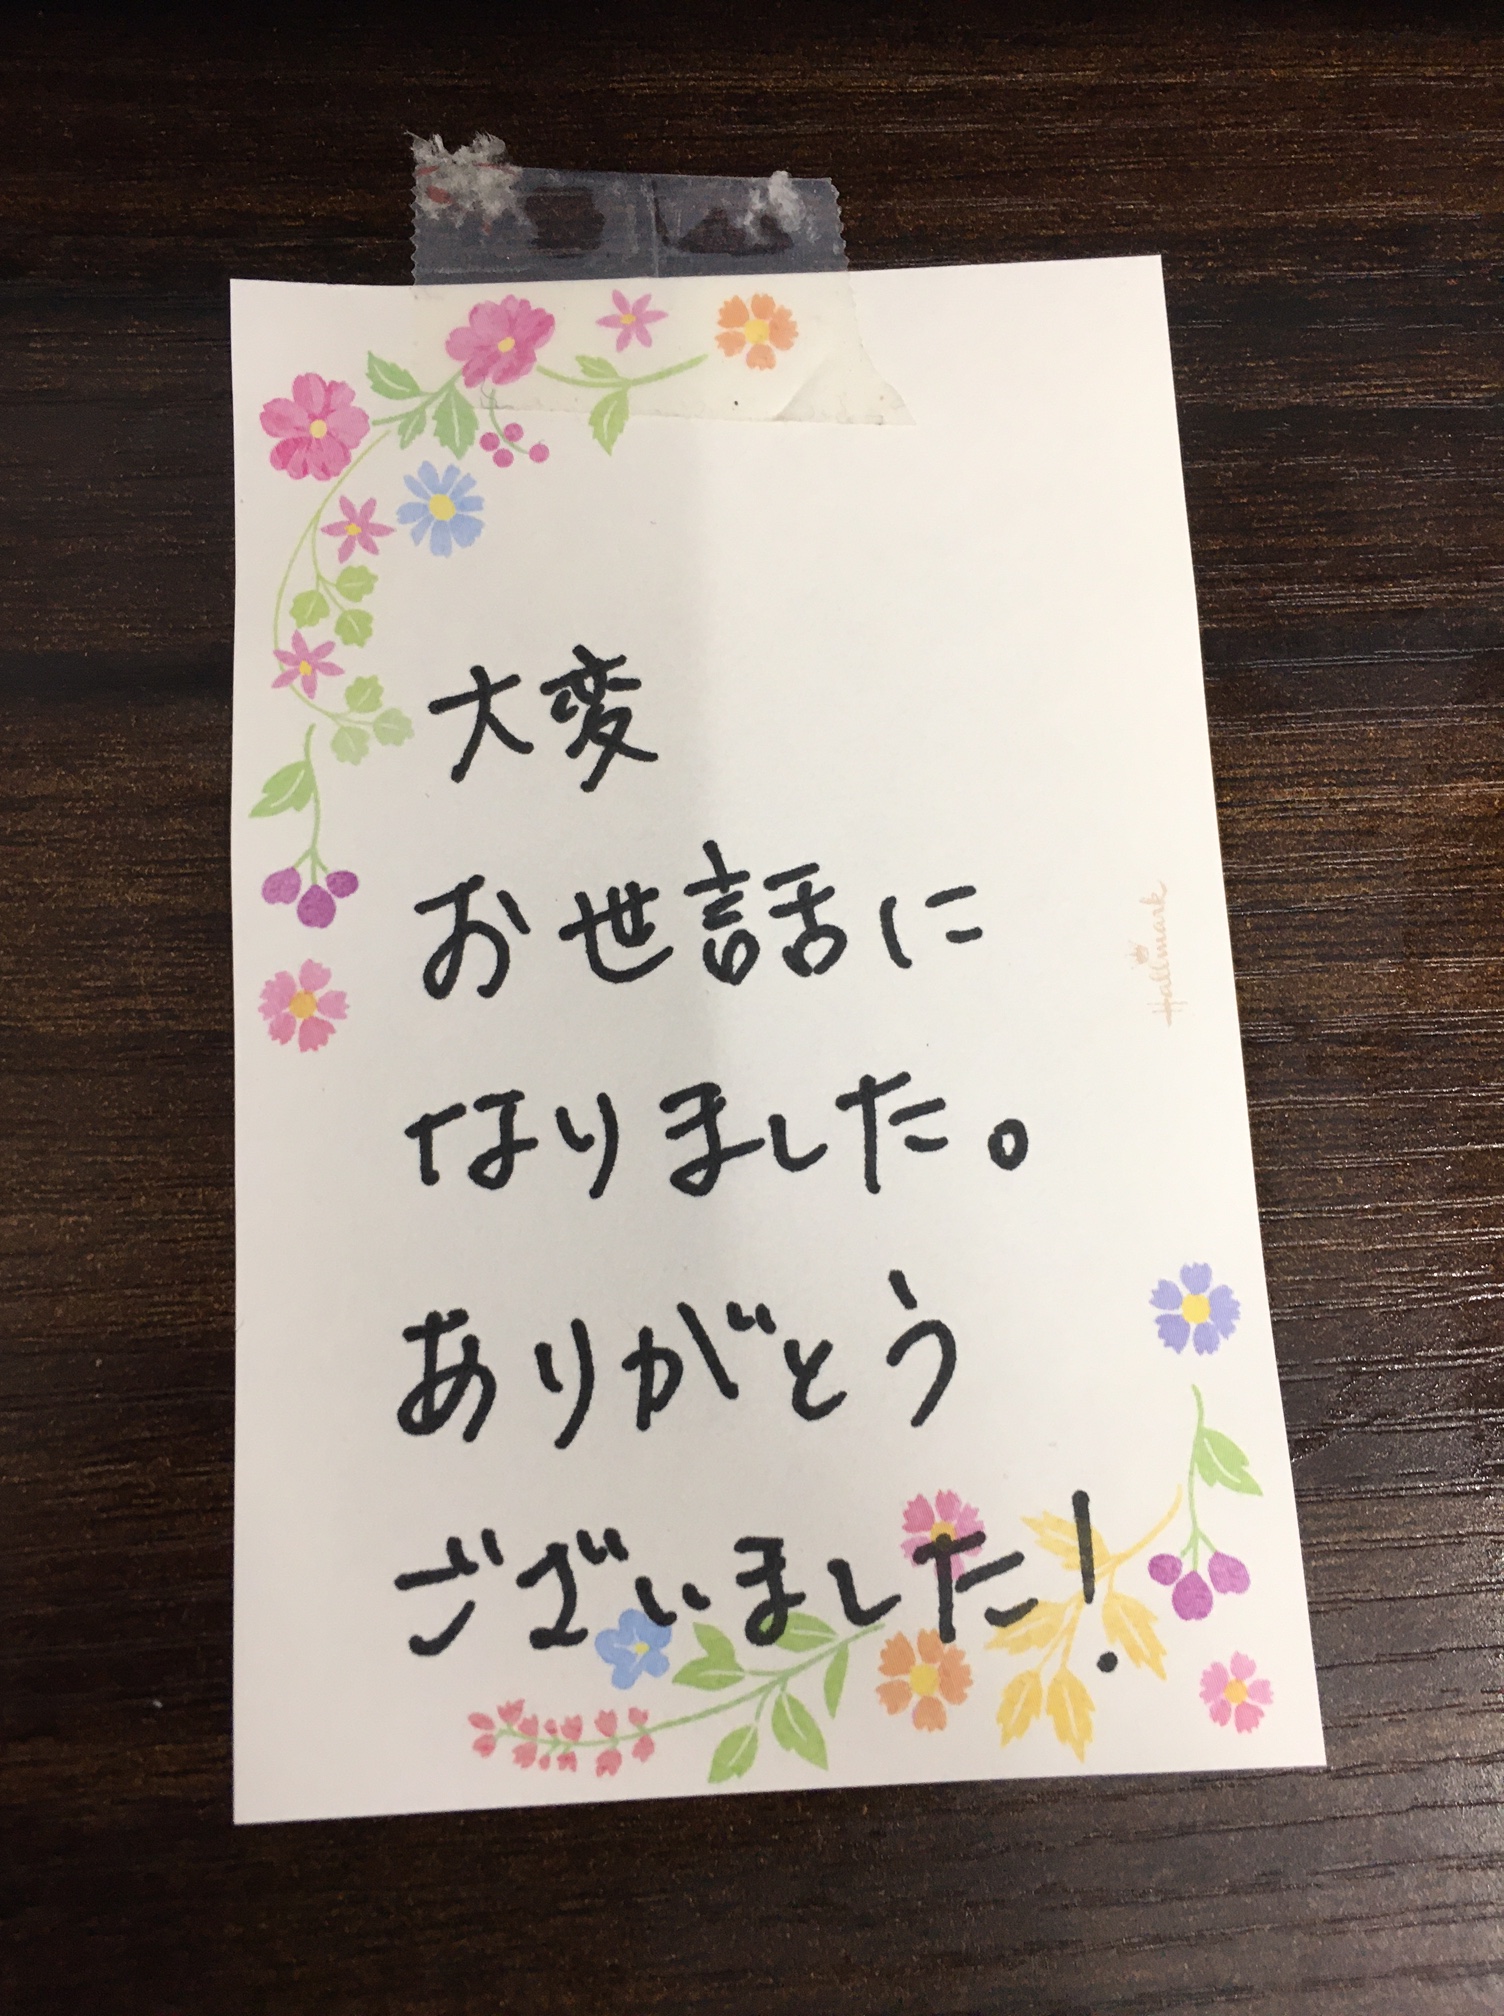 大変
お世話に
なりました。
ありがとう
ございました!
Hallmark